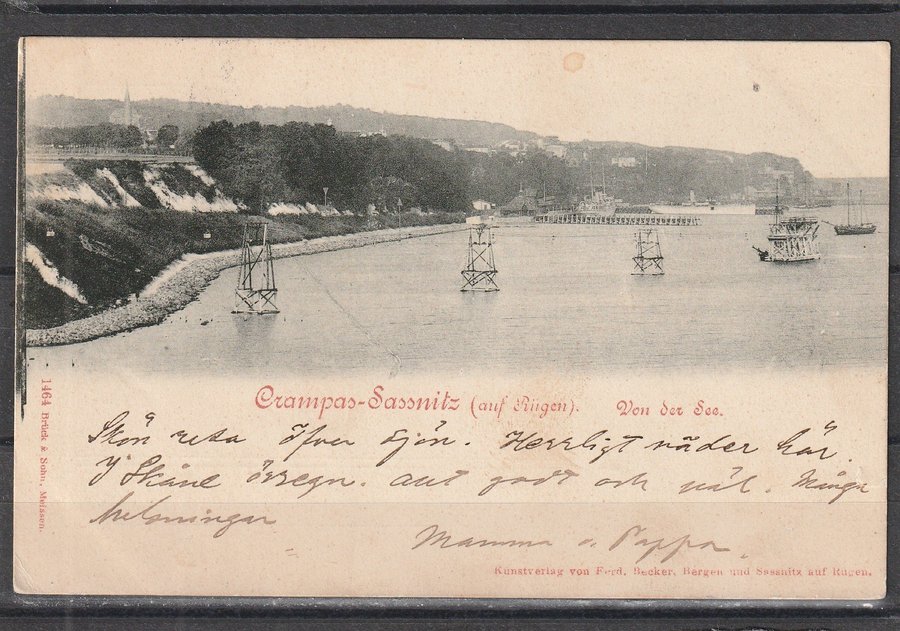 Crampas-Sassnitz (auf Rügen). Von der See.
Skön resa öfver sjön. Herrligt väder här.
I Skåne ösregn. allt godt och väl. Många
helsningar
Mamma o. Pappa.
Kunstverlag von Ferd. Becker, Bergen und Sassnitz auf Rügen.
1464 Brück & Sohn, Meissen.